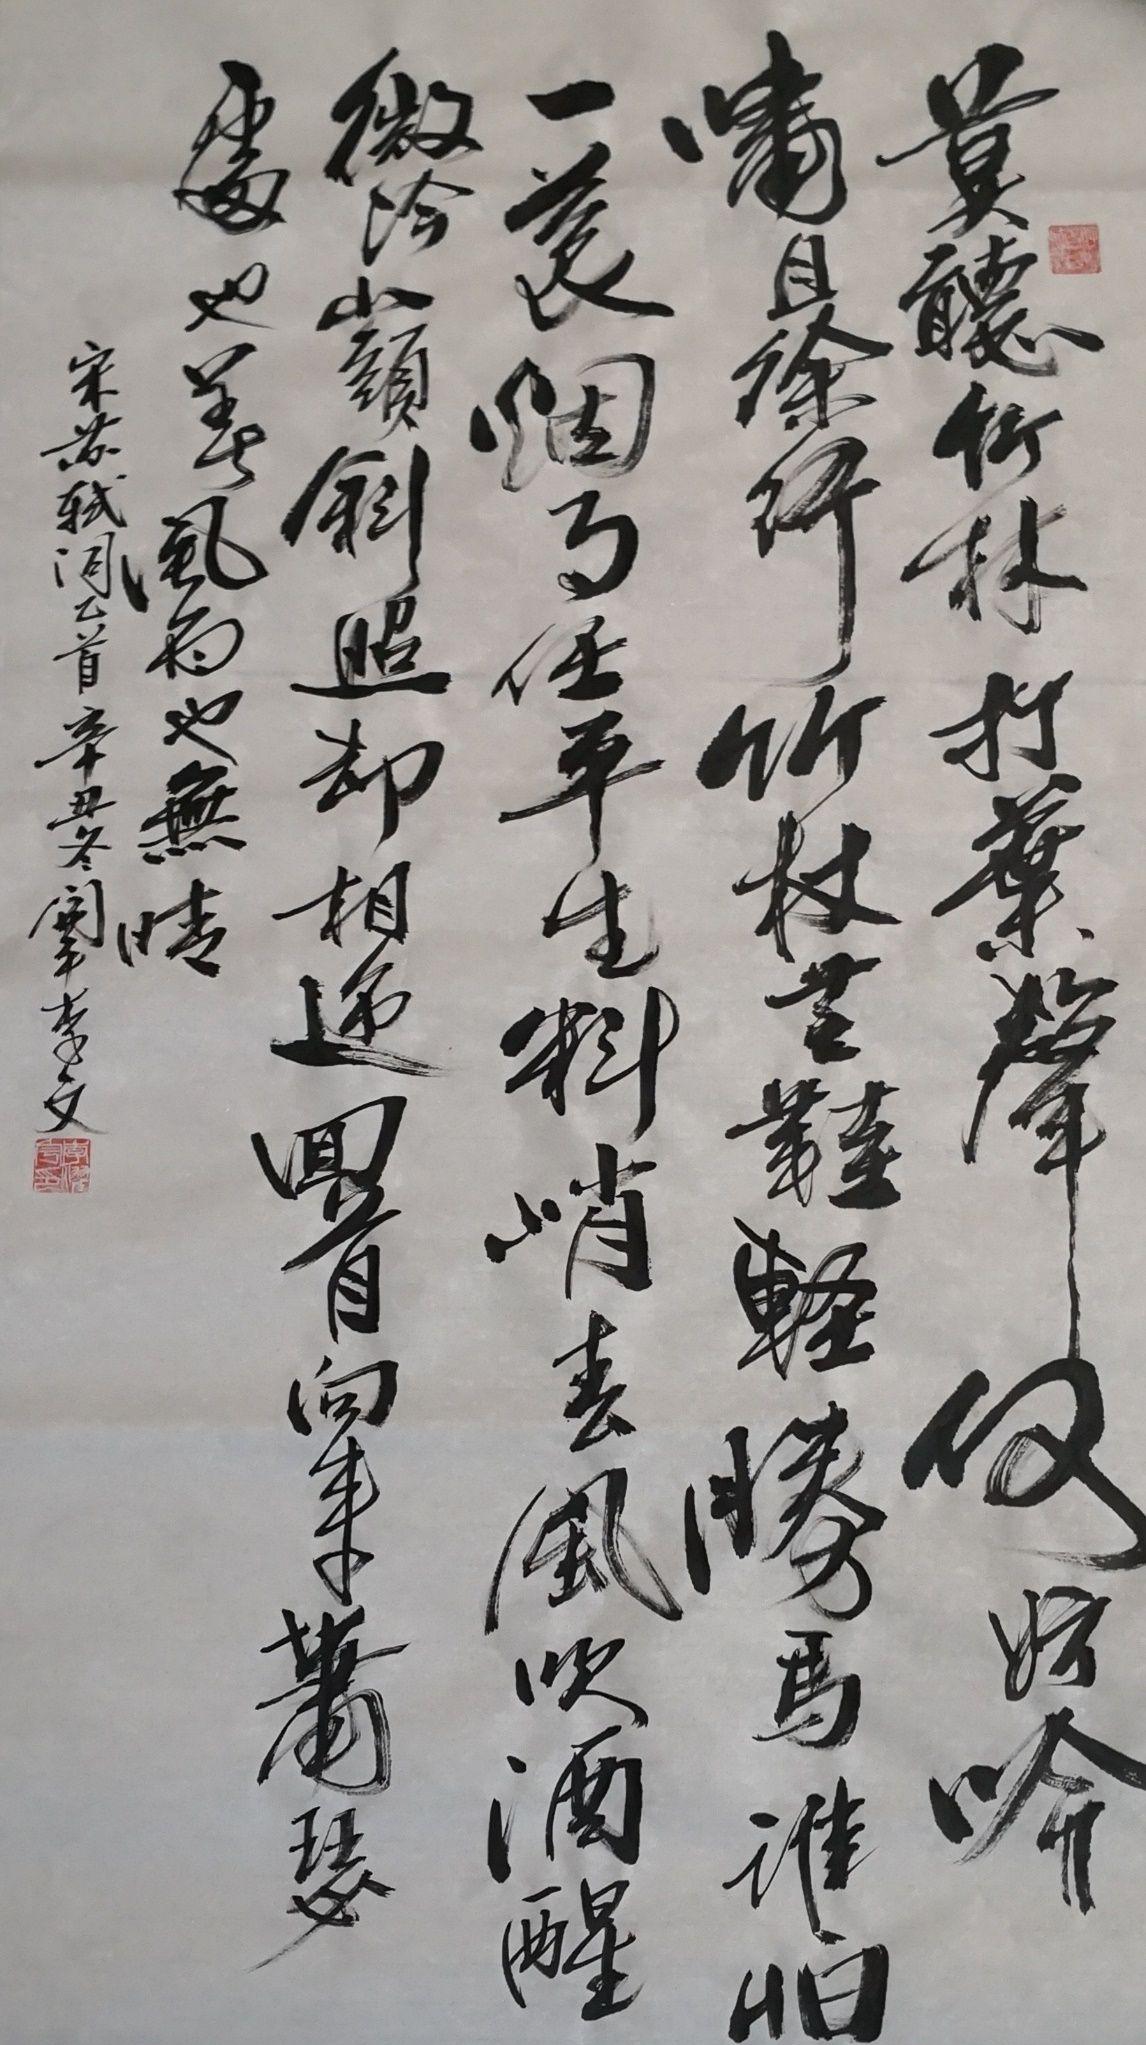 莫聽竹林打葉聲何妨吟
嘯且徐行竹杖芒鞋軽勝馬誰怕
一蓑烟雨任平生料峭春風吹酒醒
微冷山頭斜照却相迎回首向来蕭瑟
處也無風雨也無晴
宋苏軾词乙首辛丑冬李文